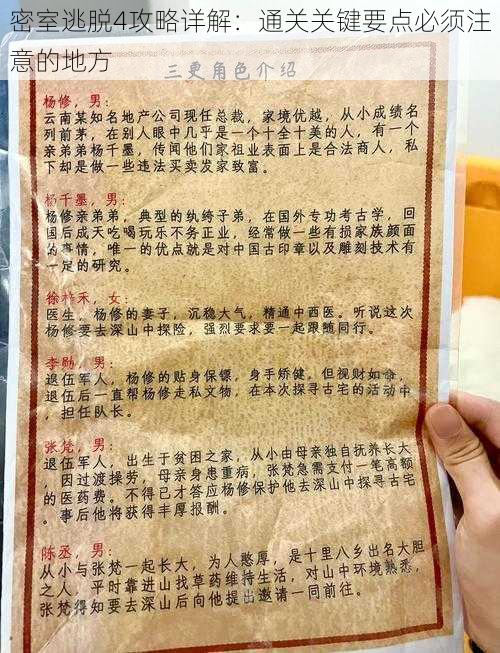 密室逃脱4攻略详解：通关关键要点必须注
意的地方
三更角色介绍
杨修，男：
云南某知名地产公司现任总裁，家境优越，从小成绩名
列前茅，在别人眼中几乎是一个十全十美的人，有一个
亲弟弟杨千墨，传闻他们家祖业表面上是合法商人，私
下却是做一些违法买卖发家致富。
杨千墨，男：
杨修亲弟弟，典型的纨绔子弟，在国外专功考古学，回
国后成天吃喝玩乐不务正业，经常做一些有损家族颜面
的事情，唯一的优点就是对中国古印章以及雕刻技术有
一定的研究。
徐梓禾，女：
医生，杨修的妻子，沉稳大气，精通中西医。听说这次
杨修要去深山中探险，强烈要求要一起跟随同行。
李勋，男：
退伍军人，杨修的贴身保镖，身手矫健，但视财如命，
退伍后一直帮杨修走私文物，在本次探寻古宅的活动中
，担任队长。
张梵，男：
退伍军人，出生于贫困之家，从小由母亲独自抚养长大
，因过渡操劳，母亲身患重病，张梵急需支付一笔高额
的医药费。不得已才答应杨修保护他去深山中探寻古宅
。事后他将获得丰厚报酬。
陈丞，男：
从小与张梵一起长大，为人憨厚，是十里八乡出名大胆
之人，平时靠进山找草药维持生活，对山中环境熟悉，
张梵得知要去深山后向他提出邀请一同前往。